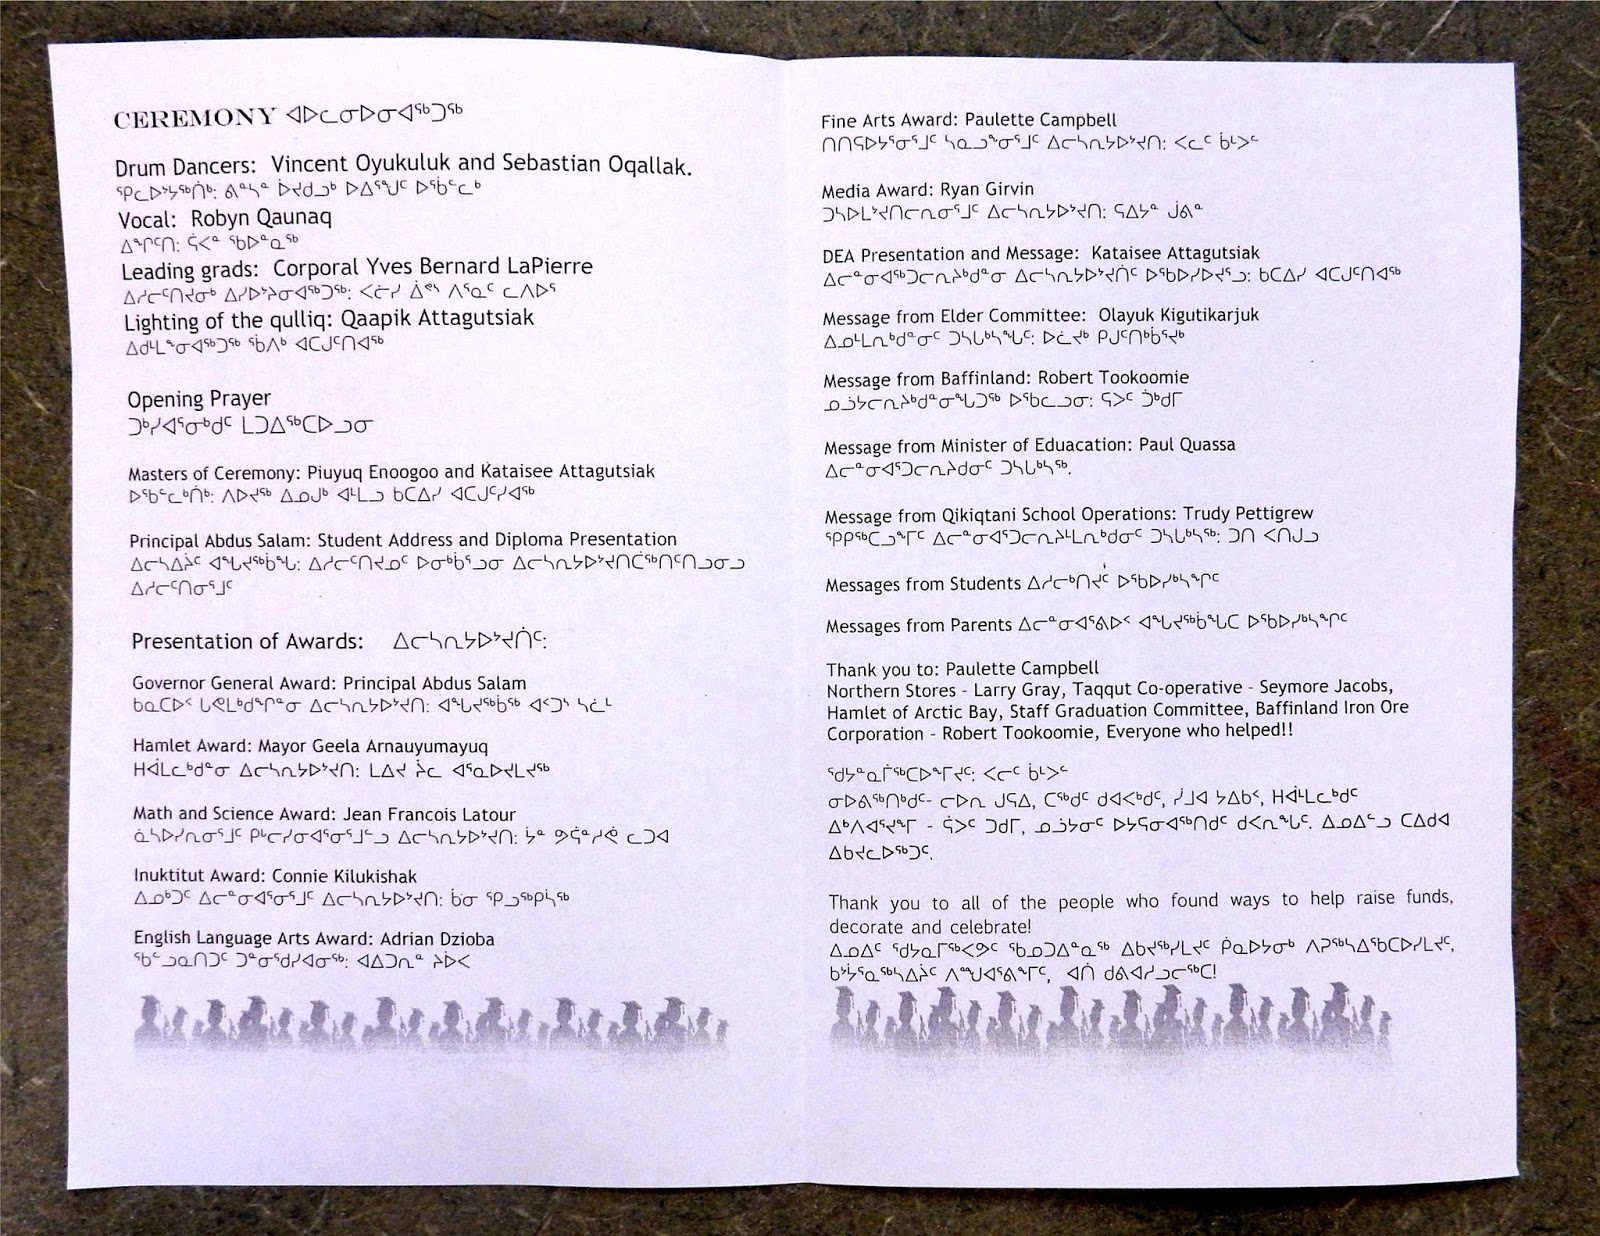 CEREMONY ᐊᐅᓚᓂᐅᓂᐊᖅᑐᖅ
Drum Dancers: Vincent Oyukuluk and Sebastian Oqallak.
ᕿᓚᐅᔾᔭᖅᑏᒃ: ᕕᓐᓴᓐ ᐆᔪᑯᓗᒃ ᐅᐃᕐᖑᑦ ᐅᖄᓪᓚᒃ
Vocal: Robyn Qaunaq
ᐃᖏᑦᑎ: ᕌᐸᓐ ᖃᐅᓐᓇᖅ
Leading grads: Corporal Yves Bernard LaPierre
Lighting of the qulliq: Qaapik Attagutsiak
ᐃᑯᒻᒪᖕᓂᐊᖅᑐᖅ ᖄᐱᒃ ᐊᑕᒍᑦᑎᐊᖅ
Opening Prayer
ᑐᒃᓯᐊᕐᓂᒃᑯᑦ ᒪᑐᐃᖅᑕᐅᓗᓂ
Masters of Ceremony: Piuyuq Enoogoo and Kataisee Attagutsiak
ᐅᖃᓪᓚᒃᑏᒃ: ᐱᐅᔪᖅ ᐃᓄᒍᒃ ᐊᒻᒪᓗ ᑲᑕᐃᓯ ᐊᑕᒍᑦᓯᐊᖅ
Principal Abdus Salam: Student Address and Diploma Presentation
ᐃᓕᓴᐃᔩᑦ ᐊᖓᔪᖅᑳᖓ: ᐃᓱᓕᑦᑎᔪᓄᑦ ᐅᓂᒃᑳᕐᓗᓂ ᐃᓕᓴᕆᔭᐅᔾᔪᑎᑖᖅᑎᑦᑎᓗᓂᓗ
ᐃᓱᓕᑦᑎᓂᕐᒧᑦ
Presentation of Awards: ᐃᓕᓴᕆᔭᐅᔾᔪᑏᑦ:
Governor General Award: Principal Abdus Salam
Hamlet Award: Mayor Geela Arnauyumayuq
ᕼᐋᒻᓚᒃᑯᓐᓂ ᐃᓕᓴᕆᔭᐅᔾᔪᑎ: ᒪᐃᔪ ᔩᓚ ᐊᕐᓇᐅᔪᒪᔪᖅ
Math and Science Award: Jean Francois Latour
Inuktitut Award: Connie Kilukishak
ᐃᓄᒃᑐᑦ ᐃᓕᓐᓂᐊᕐᓂᕐᒧᑦ ᐃᓕᓴᕆᔭᐅᔾᔪᑎ: ᑳᓂ ᕿᓗᖅᑮᓴᖅ
English Language Arts Award: Adrian Dzioba
ᖃᓪᓗᓇᑎᑐᑦ ᑐᓐᓂᖁᓯᐊᓂᖅ: ᐊᐃᑐᕆᓐ ᔨᐆᐸ
Fine Arts Award: Paulette Campbell
ᑎᑎᕋᐅᔭᕐᓂᕐᒧᑦ ᓴᓇᓗᖕᓂᕐᒧᑦ ᐃᓕᓴᕆᔭᐅᔾᔪᑎ: ᐸᓚᑦ ᑳᒻᐳᑦ
Media Award: Ryan Girvin
ᑐᓴᐅᒪᔾᔪᑎᓕᕆᓂᕐᒧᑦ ᐃᓕᓴᕆᔭᐅᔾᔪᑎ: ᕋᐃᔭᓐ ᒎᕕᓐ
DEA Presentation and Message: Kataisee Attagutsiak
ᐃᓕᓐᓂᐊᖅᑐᓕᕆᔨᒃᑯᓐᓂ ᐃᓕᓴᕆᔭᐅᔾᔪᑏᑦ ᐅᖃᐅᓯᐅᔪᕐᓗ: ᑲᑕᐃᓯ ᐊᑕᒍᑦᑎᐊᖅ
Message from Elder Committee: Olayuk Kigutikarjuk
ᐃᓄᒻᒪᕆᒃᑯᓐᓂᑦ ᑐᓴᒐᒃᓴᖓᑦ: ᐅᓛᔪᒃ ᑭᒍᑎᒃᑳᕐᔪᒃ
Message from Baffinland: Robert Tookoomie
ᓄᓘᔭᓕᕆᔨᒃᑯᓐᓂᖓᑐᖅ ᐅᖃᓚᓗᓂ: ᕋᐳᑦ ᑑᒃᑯᒥ
Message from Minister of Eduacation: Paul Quassa
ᐃᓕᓐᓂᐊᕐᑐᓕᕆᔨᑯᓂᑦ ᑐᓴᒐᒃᓴᖅ.
Message from Qikiqtani School Operations: Trudy Pettigrew
ᕿᑭᖅᑕᓗᖕᒥᑦ ᐃᓕᓐᓂᐊᕐᑐᓕᕆᔨᒻᒪᕆᒃᑯᓂᑦ ᑐᓴᒐᒃᓴᖅ: ᑐᑎ ᐸᑎᒍᓗ
Messages from Students ᐃᓱᓕᒃᑎᔪᑦ ᐅᖃᐅᓯᒃᓴᖏᑦ
Messages from Parents ᐃᓕᓐᓂᐊᕐᕕᐅᑉ ᐊᖓᔪᖅᑳᖓᑕ ᐅᖃᐅᓯᒃᓴᖏᑦ
Thank you to: Paulette Campbell
Northern Stores - Larry Gray, Taqqut Co-operative - Seymore Jacobs,
Hamlet of Arctic Bay, Staff Graduation Committee, Baffinland Iron Ore
Corporation - Robert Tookoomie, Everyone who helped!!
ᖁᔭᓐᓇᒦᖅᑕᐅᖕᒥᔪᑦ: ᐸᓕᑦ ᑳᒻᐳᑦ
ᓂᐅᕕᖅᑎᒃᑯᑦ- ᓕᐅᕆ ᒍᕋᐃ, ᑕᖅᑯᑦ ᑯᐊᐸᒃᑯᑦ, ᓰᒧᐊ ᔭᐃᑲᑉ, ᕼᐋᒻᒪᓚᒃᑯᑦ
ᐃᒃᐱᐊᕐᔪᖕᒥ - ᕌᐳᑦ ᑐᑯᒥ, ᓄᓘᔭᓂᑦ ᐅᔭᕋᓂᐊᖅᑎᑯᑦ ᑯᐸᕆᖓᑦ. ᐃᓄᐃᓪᓗ ᑕᐃᑯᐊ
ᐃᑲᔪᓚᐅᖅᑐᑦ.
Thank you to all of the people who found ways to help raise funds,
decorate and celebrate!